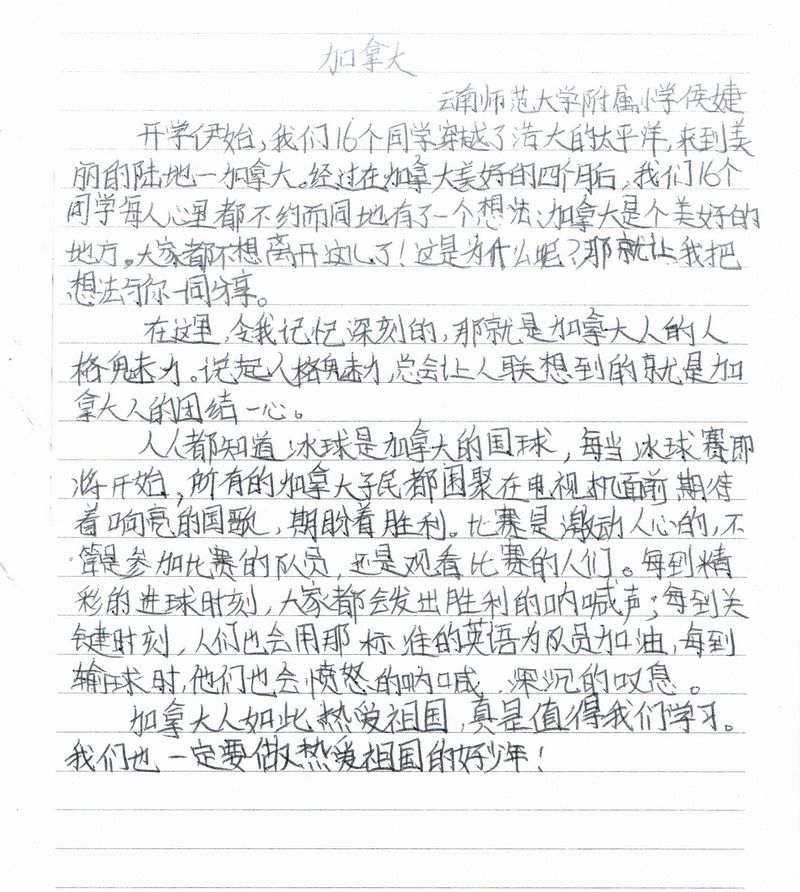 加拿大
云南师范大学附属小学侯婕
开学伊始,我们16个同学穿越了浩大的太平洋,来到美
丽的陆地—加拿大。经过在加拿大美好的四个月后,我们16个
同学每人心里都不约而同地有了一个想法:加拿大是个美好的
地方。大家都不想离开这儿了!这是为什么呢?那就让我把
想法与你一同分享。
在这里,令我记忆深刻的,那就是加拿大人的人
格魅力。说起人格魅力,总会让人联想到的就是加
拿大人的团结一心。
人人都知道冰球是加拿大的国球,每当冰球赛即
将开始,所有的加拿大子民都困聚在电视机面前期待
着响亮的国歌,期盼着胜利。比赛是激动人心的,不
管是参加比赛的队员,还是观看比赛的人们。每到精
彩的进球时刻,大家都会发出胜利的呐喊声;每到关
键时刻,人们也会用那标准的英语为队员加油,每到
输球时,他们也会愤怒的呐喊,深沉的叹息。
加拿大人如此热爱祖国,真是值得我们学习。
我们也一定要做热爱祖国的好少年!